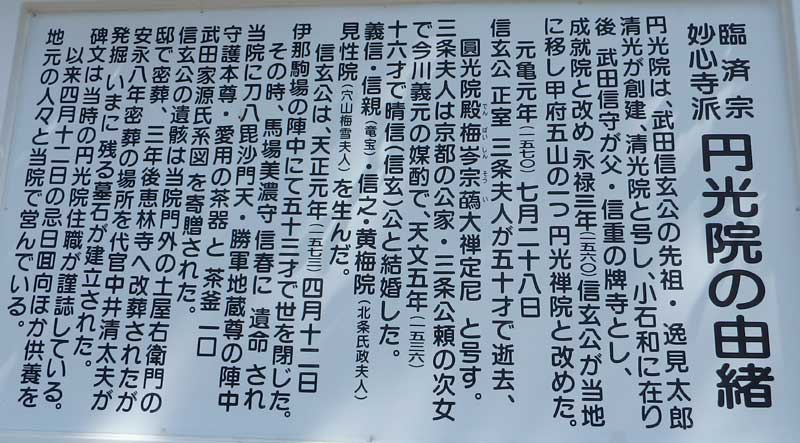 臨済宗
妙心寺派
円光院の由緒
円光院は、武田信玄公の先祖・逸見太郎
清光が創建、清光院と号し、小石和に在り
後 武田信守が父・信重の牌寺とし、
成就院と改め 永禄三年(一五六〇)信玄公が当地
に移し甲府五山の一つ 円光禅院と改めた。
元亀元年(一五七〇)七月二十八日
信玄公 正室 三条夫人が五十才で逝去、
圓光院殿梅岑宗䳽大禅定尼 と号す。
でん ばい しん そう い
三条夫人は京都の公家・三条公頼の次女
で今川義元の媒酌で、天文五年(一五三六)
十六才で晴信(信玄)公と結婚した。
義信・信親(竜宝)・信之・黄梅院(北条氏政夫人)
見性院(穴山梅雪夫人)を生んだ。
信玄公は、天正元年(一五七三)四月十二日
伊那駒場の陣中にて五十三才で世を閉じた。
その時、馬場美濃守 信春に 遺命 され
当院に刀八毘沙門天・勝軍地蔵尊の陣中
守護本尊・愛用の茶器 と 茶釜 一口
武田家源氏系図 を寄贈された。
信玄公の遺骸は当院門外の土屋右衛門の
邸で密葬、三年後恵林寺へ改葬されたが
安永八年密葬の場所を代官中井清太夫が
発掘 いまに 残る墓石が建立された。
碑文は当時の円光院住職が謹誌している。
以来四月十二日の忌日回向ほか供養を
地元の人々と当院で営んでいる。